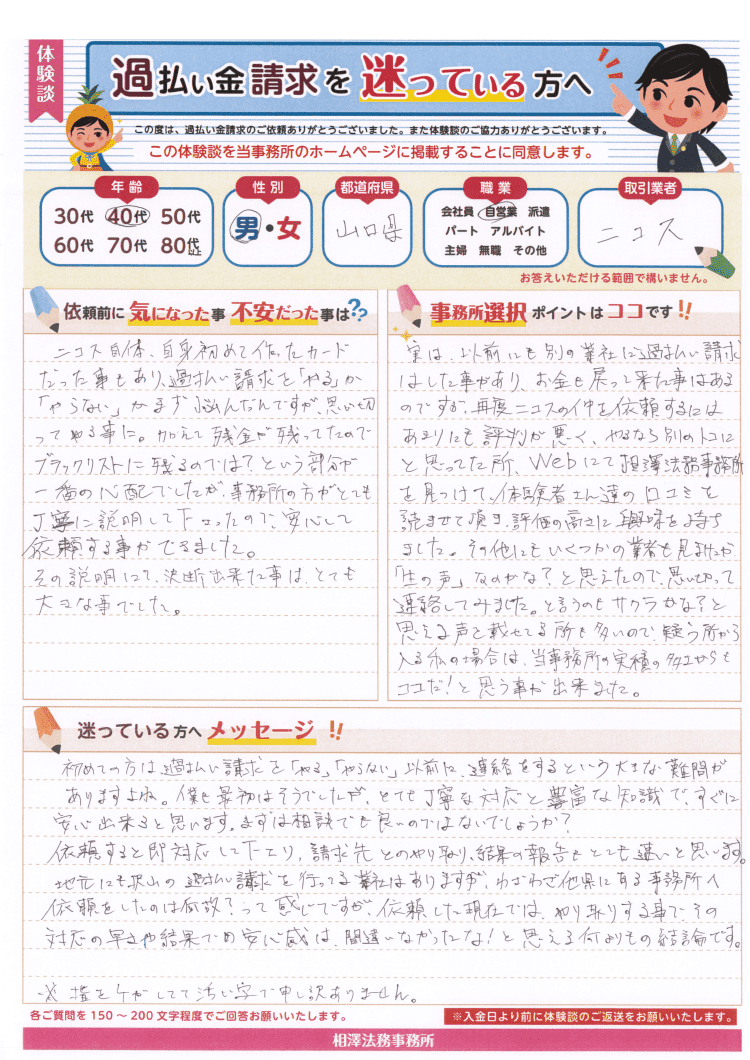 体験談
過払い金請求を迷っている方へ
この度は、過払い金請求のご依頼ありがとうございました。また体験談のご協力ありがとうございます。
この体験談を当事務所のホームページに掲載することに同意します。
年齢
30代 40代 50代
60代 70代 80代以上
性別
男・女
都道府県
山口県
職業
会社員 自営業 派遣
パート アルバイト
主婦 無職 その他
取引業者
ニコス
お答えいただける範囲で構いません。
依頼前に気になった事 不安だった事は??
ニコス自体、自身初めて作ったカード
だった事もあり、過払い請求を「やる」か
「やらない」かまず悩んだんですが、思い切
ってやる事に。加えて残金が残ってたので
ブラックリストに残るのでは?という部分が
一番の心配でしたが、事務所の方がとても
丁寧に説明して下さったので、安心して
依頼する事ができました。
その説明にて、決断出来た事は、とても
大きな事でした。
事務所選択ポイントはココです!!
実は、以前にも別の業社に過払い請求
はした事があり、お金も戻って来た事はある
のですが、再度ニコスの件を依頼するには
あまりにも評判が悪く、やるなら別のトコに
と思ってた所、Webにて相澤法務事務所
を見つけて、体験者さん達の口コミを
読ませて頂き、評価の高さに興味を持ち
ました。その他にもいくつかの業者も見ましたが
「生の声」なのかな?と思えたので、思い切って
連絡してみました。と言うのもサクラかな?と
思える声を載せてる所も多いので、疑う所から
入る私の場合は、当事務所の実積の多さからも
ココだ!と思う事が出来ました。
迷っている方へメッセージ!!
初めての方は過払い請求を「やる」「やらない」以前に、連絡をするという大きな難問が
ありますよね。僕も最初はそうでしたが、とても丁寧な対応と豊富な知識で、すぐに
安心出来ると思います。まずは相談でも良いのではないでしょうか?
依頼すると即対応して下さり、請求先とのやり取り、結果の報告もとても速いと思います。
地元にも沢山の過払い請求を行ってる業社はありますが、わざわざ他県にある事務所へ
依頼をしたのは何故?って感じですが依頼した現在では、やり取りする事で、その
対応の早さや結果での安心感は、間違いなかったな!と思える何よりもの結論です。
※指をケガしてて汚い字で申し訳ありません。
各ご質問を150～200文字程度でご回答お願いいたします。
※入金日より前に体験談のご返送をお願いいたします。
相澤法務事務所